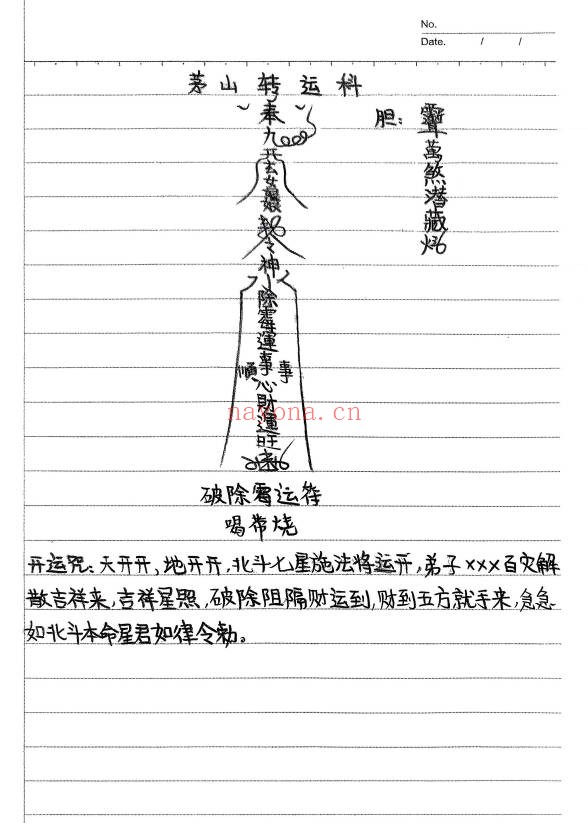 No.
Date. / /
茅山转运科
奉
九
玄
女
娘
令
神
除
霉
運
事
順 事
心
財
運
旺
nayona.cn
胆：
萬
煞
潛
藏
破除霉运符
喝带烧
开运咒：天开开，地开开，北斗七星施法将运开，弟子×××百灾解
散吉祥来，吉祥星照，破除阻隔财运到，财到五方就手来，急急
如北斗本命星君如律令勅。